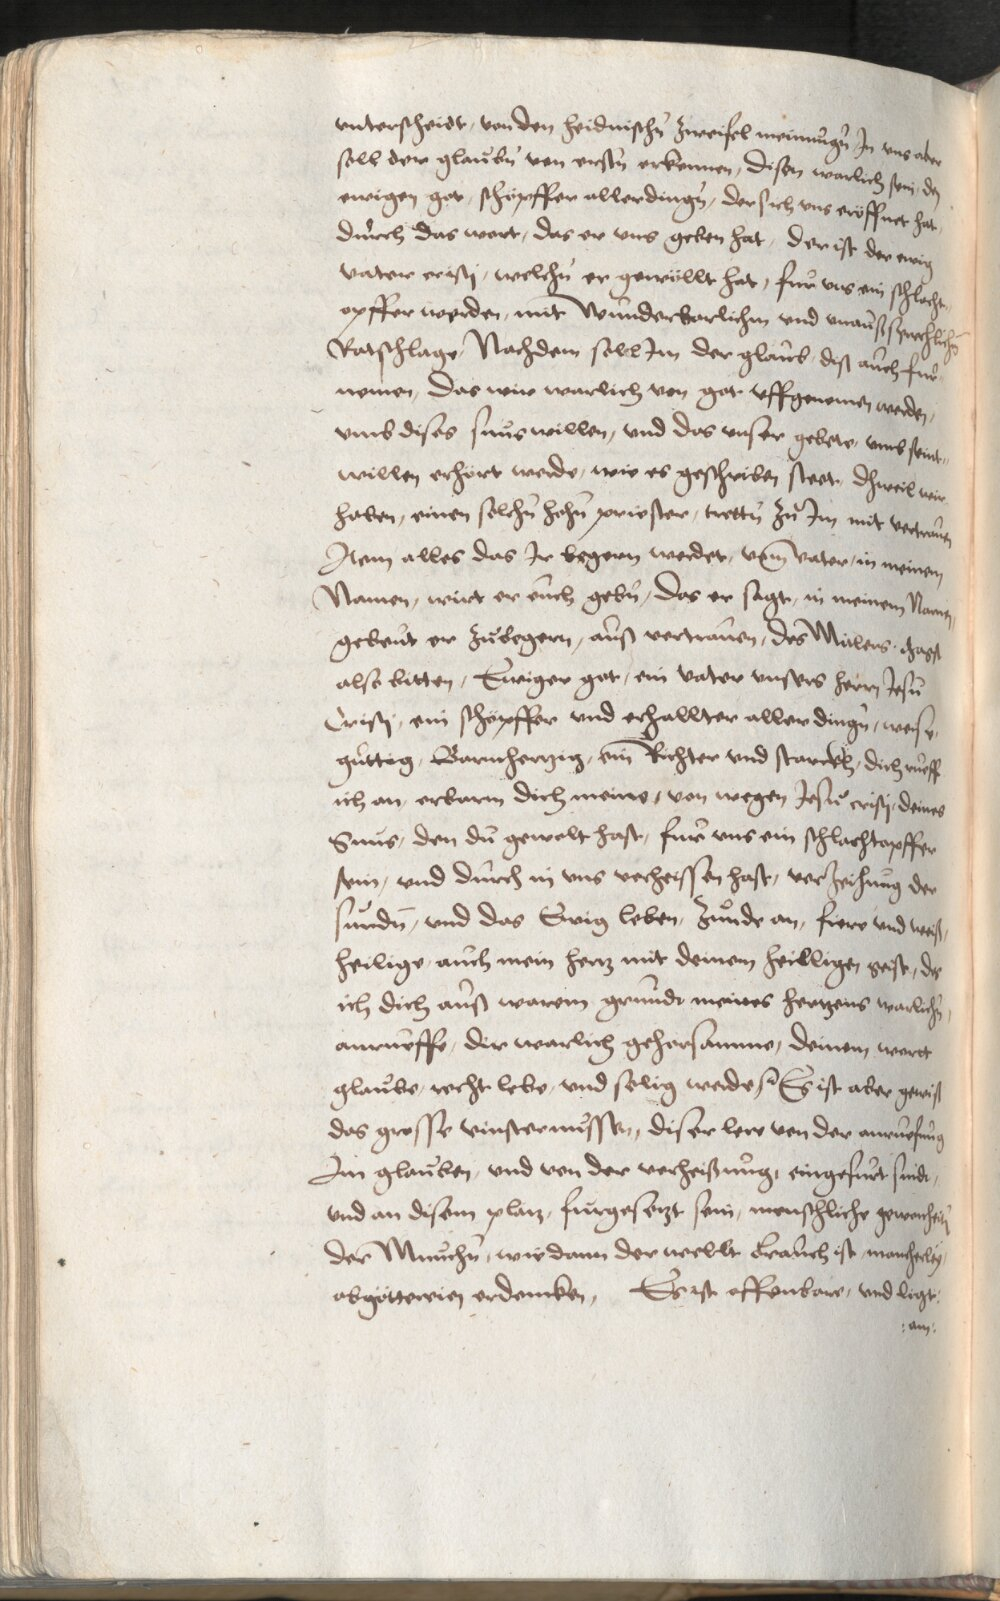 unterscheidt, von den heidnischn zweifel meinungn In uns aber
soll der glaubn von erstn erkennen, disen warlich sein, den
ewigen got, schöpffer allerdingn, der sich uns eröffnet hat,
durch das wort, das er uns geben hat, der ist der ewig
vater cristi, welchn er gewöllt hat, fur uns ein schlacht„
opffer werden, mit Wunderbarlichm und unaußsprechlichn
Ratschlage, Nachdem soll Im der glaub, diß auch fur„
nemen, das wir warlich von got uffgenomen werden,
umb dises suns willen, und das unser gebete, umb seint„
willen erhört werde, wie es geschriben steet, Dweil wir
haben, einen solchn hohn priester, trettn zu Im mit vertrauen
Item alles das Ir begern werdet, vom vater, in meinem
Namen, wirt er euch gebn, das er sagt, in meinem Namen,
gebeut er zubegern, auß vertrauen, des Mitlers,
also bitten, Ewiger got, ein vater unsers hern Jesu
Cristi, ein schöpffer und erhallter aller dingn, weise,
guttig, Barmhertzig, ein Richter und starckh, dich rueff
ich an, erbarm dich meine, von wegen Jesu cristi, deines
Suns, den du gewolt hast, fur uns ein schlachtopffer
sein, und durch in uns verheissen hast, verzeihung der
sundn, und das Ewig leben, Zunde an, fiere und weiß,
heilige, auch mein hertz mit deinem heilligen geist, das
ich dich auß warem grundt meines hertzens warlichn,
anrueffe, dir warlich gehorsamme, deinem wortt
glaube, recht lebe, und selig werde, Es ist aber gewiß
das grosse vinsternussen, diser lere von der anruefung
Im glauben, und von der verheissung, eingefurt sindt,
und an disem platz, furgesetzt sein, menschliche gewonheitn
der Munchn, wie dann der wellt brauch ist, mancherley,
abgöttereien erdencken, Es ist offenbare, und ligt:
:am: